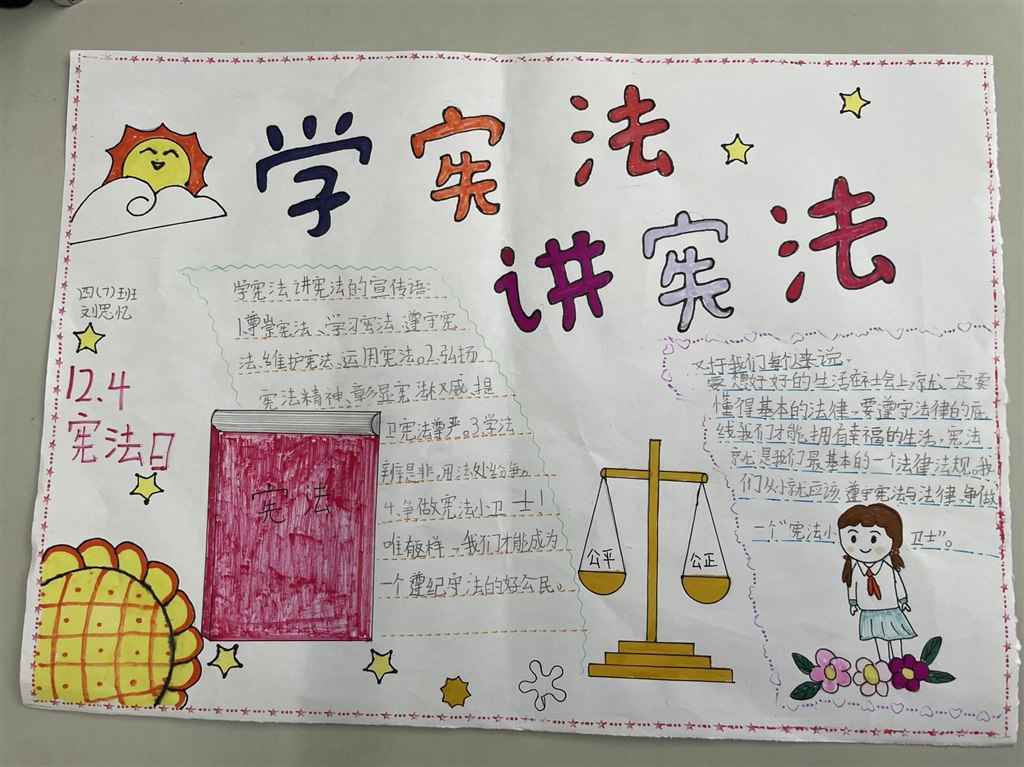 学宪法
讲宪法
四(7)班
刘思忆
12.4
宪法日
学宪法讲宪法的宣传语:
1.尊崇宪法、学习宪法、遵守宪
法、维护宪法、运用宪法。2.弘扬
宪法精神、彰显宪法权威、提
卫宪法尊严。3.学法
辨是非,用法处纷争。
4.争做宪法小卫士!
唯有这样,我们才能成为
一个遵纪守法的好公民。
宪法
公平
公正
对于我们每个人来说,
要想好好的生活在社会上,就一定要
懂得基本的法律,要遵守法律的底
线我们才能拥有幸福的生活,宪法
就是我们最基本的一个法律法规。我
们从小就应该遵守宪法与法律,争做
一个“宪法小卫士”。